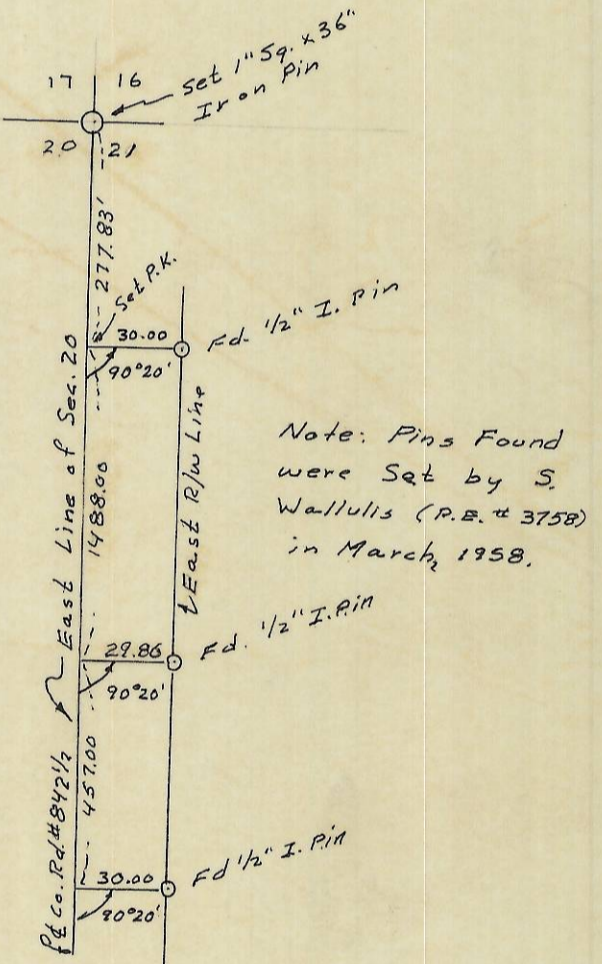 17 16
Set 1" Sq. x 36"
Iron Pin
20 21
277.83'
Set P.K.
30.00
Fd. 1/2" I. Pin
90°20'
East Line of Sec. 20
1488.00
East R/W Line
Note: Pins Found
were Set by S.
Wallulis (P.E. # 3758)
in March, 1958.
29.86
Fd. 1/2" I. Pin
90°20'
℄ Co. Rd. #842 1/2
457.00
30.00
Fd 1/2" I. Pin
90°20'